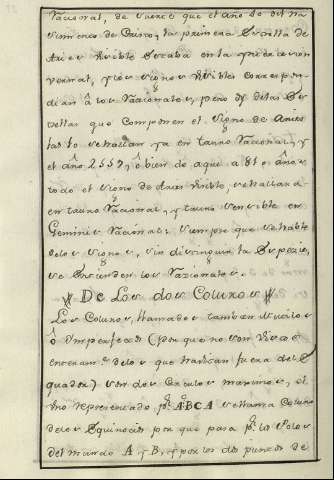 Racional, de suerte que el año 20 del na
cimiento de Cristo, la primera Estrella de
Aries visible estaba en la intersección
vernal, y los signos visibles correspon-
dian â los Racionales, pero oy dilas Es
trellas que componen el signo de Aries
las 10 se hallan ya en tauro Racional, y
el año 2559, ô bien de aqui a 810 años
todo el signo de Aries visible, se hallará
en tauro Racional, y tauro sensible en
Geminis Racional: siempre que se hable
de los signos, sin distinguir la Especie,
se entienden los Racionales.
De Los dos Coluros
Los Coluros, llamados tambien
ô Imperfectos (por que no son
de los que tratan fuera del E
quador) son dos Circulos maximos, el
Uno representado pr. ABCA se llama Coluro
de los Equinocios por que pasa pr. los Polos
del mundo A y B, y por los dos puntos de